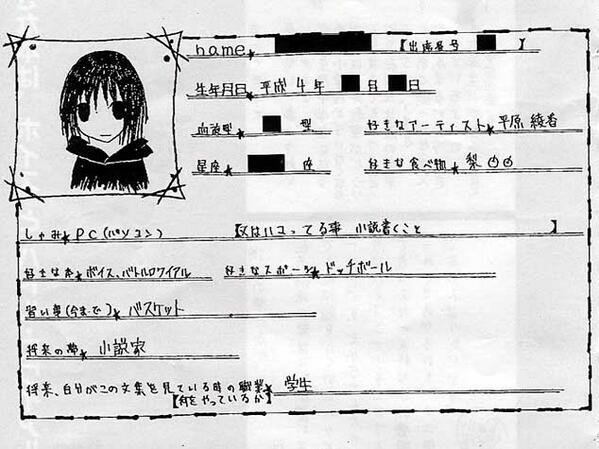 name★ 【出席番号 】
生年月日★平成4年 月 日
血液型★ 型 好きなアーティスト★平原綾香
星座★ 座 好きな食べ物★梨
しゅみ★PC(パソコン) 【又はハマってる事 小説書くこと 】
好きな本★ボイス、バトルロワイアル 好きなスポーツ★ドッチボール
習い事(今まで)★バスケット
将来の夢★小説家
将来、自分がこの文集を見ている時の職業★学生
【何をやっているか】